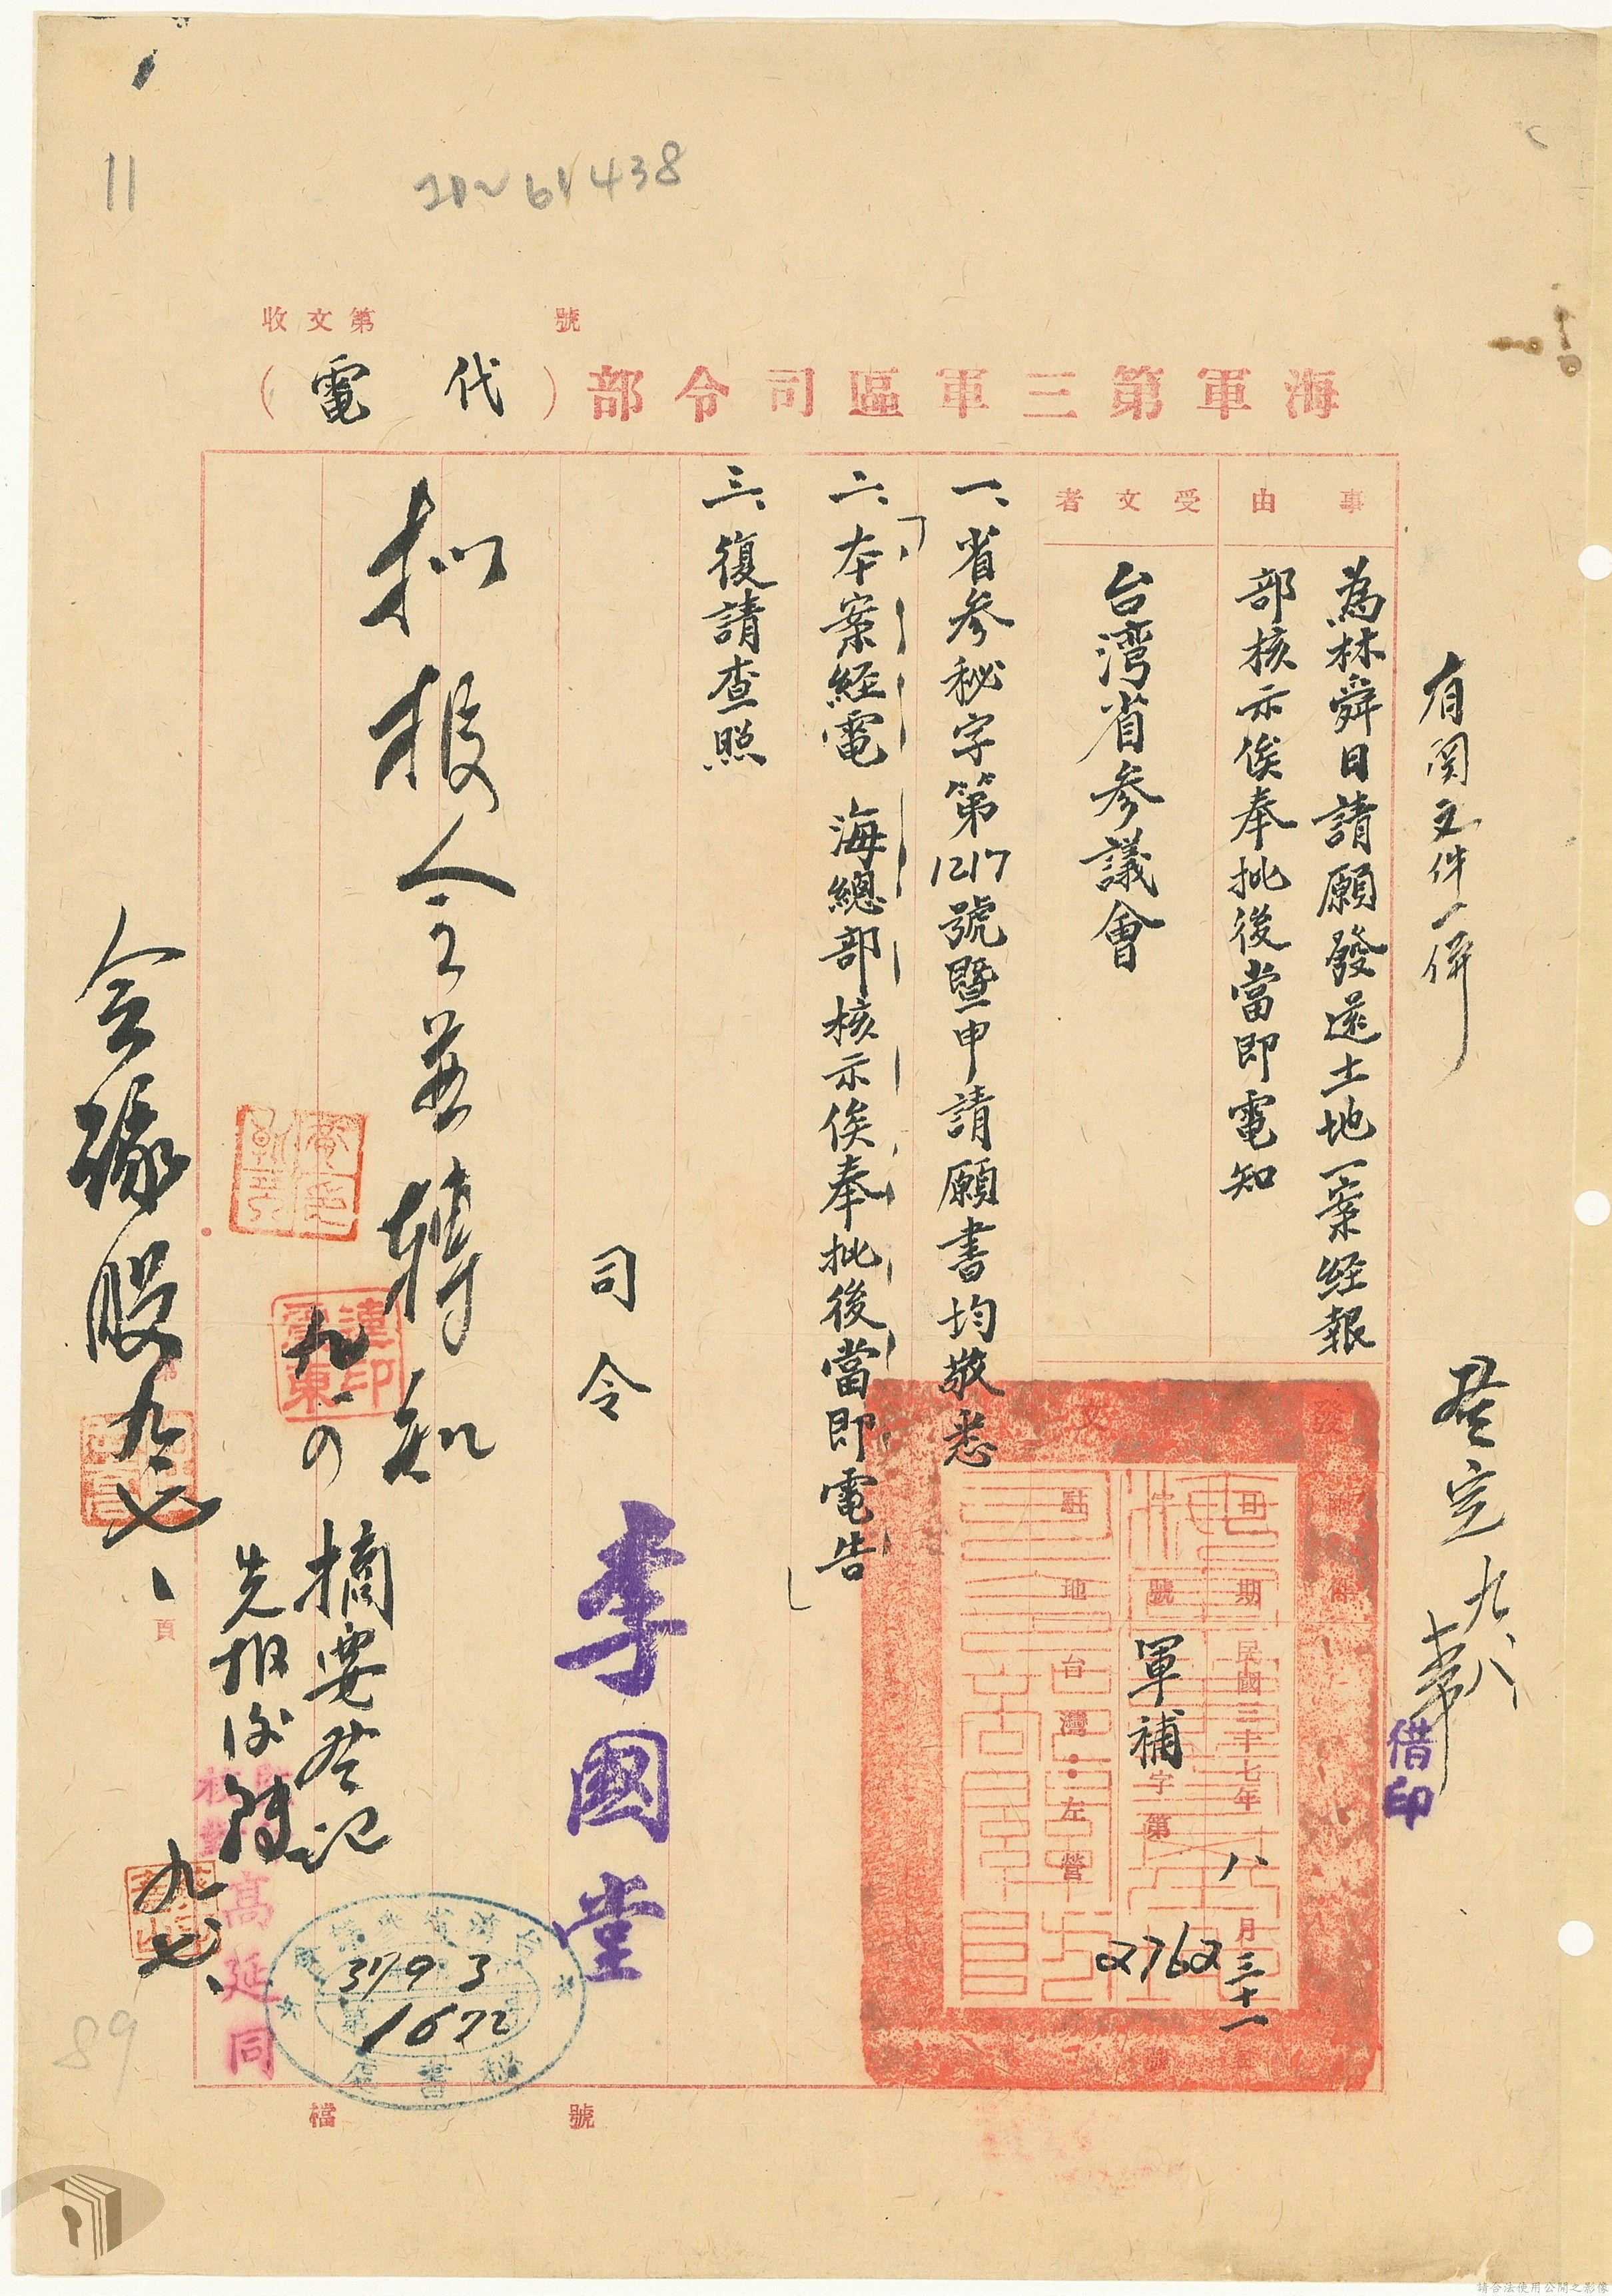 11
438
收文第 號
海軍第三軍區司令部（代電）
有関文件一併
事由
為林舜日請願發還土地一案経報
部核示俟奉批後當即電知
受文者
台湾省参議會
發文
附件
日期
民國三十七年八月三十一
字號
軍補字第2762號
駐地
台灣:左營
借印
一、省参秘字第1217號暨申請願書均敬悉
二、「本案経電 海總部核示俟奉批後當即電告」
三、復請查照
司令 李國堂
拟报会並轉知
摘要登記
先报後
九、七、
校對 高延同
台灣省參議會
37 9 3
1672
秘書處
第 頁
檔 號
89
請合法使用公開之影像